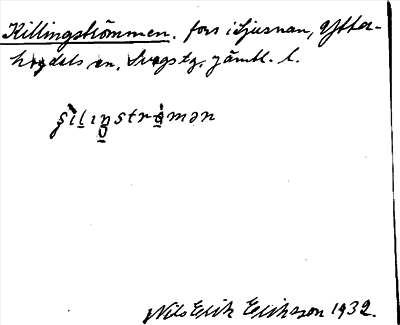 Killingströmmen. fors i Ljusnan, Ytter-
hogdals sn, Svegs tg, Jämtl. l.
Nils Erik Eriksson 1932.